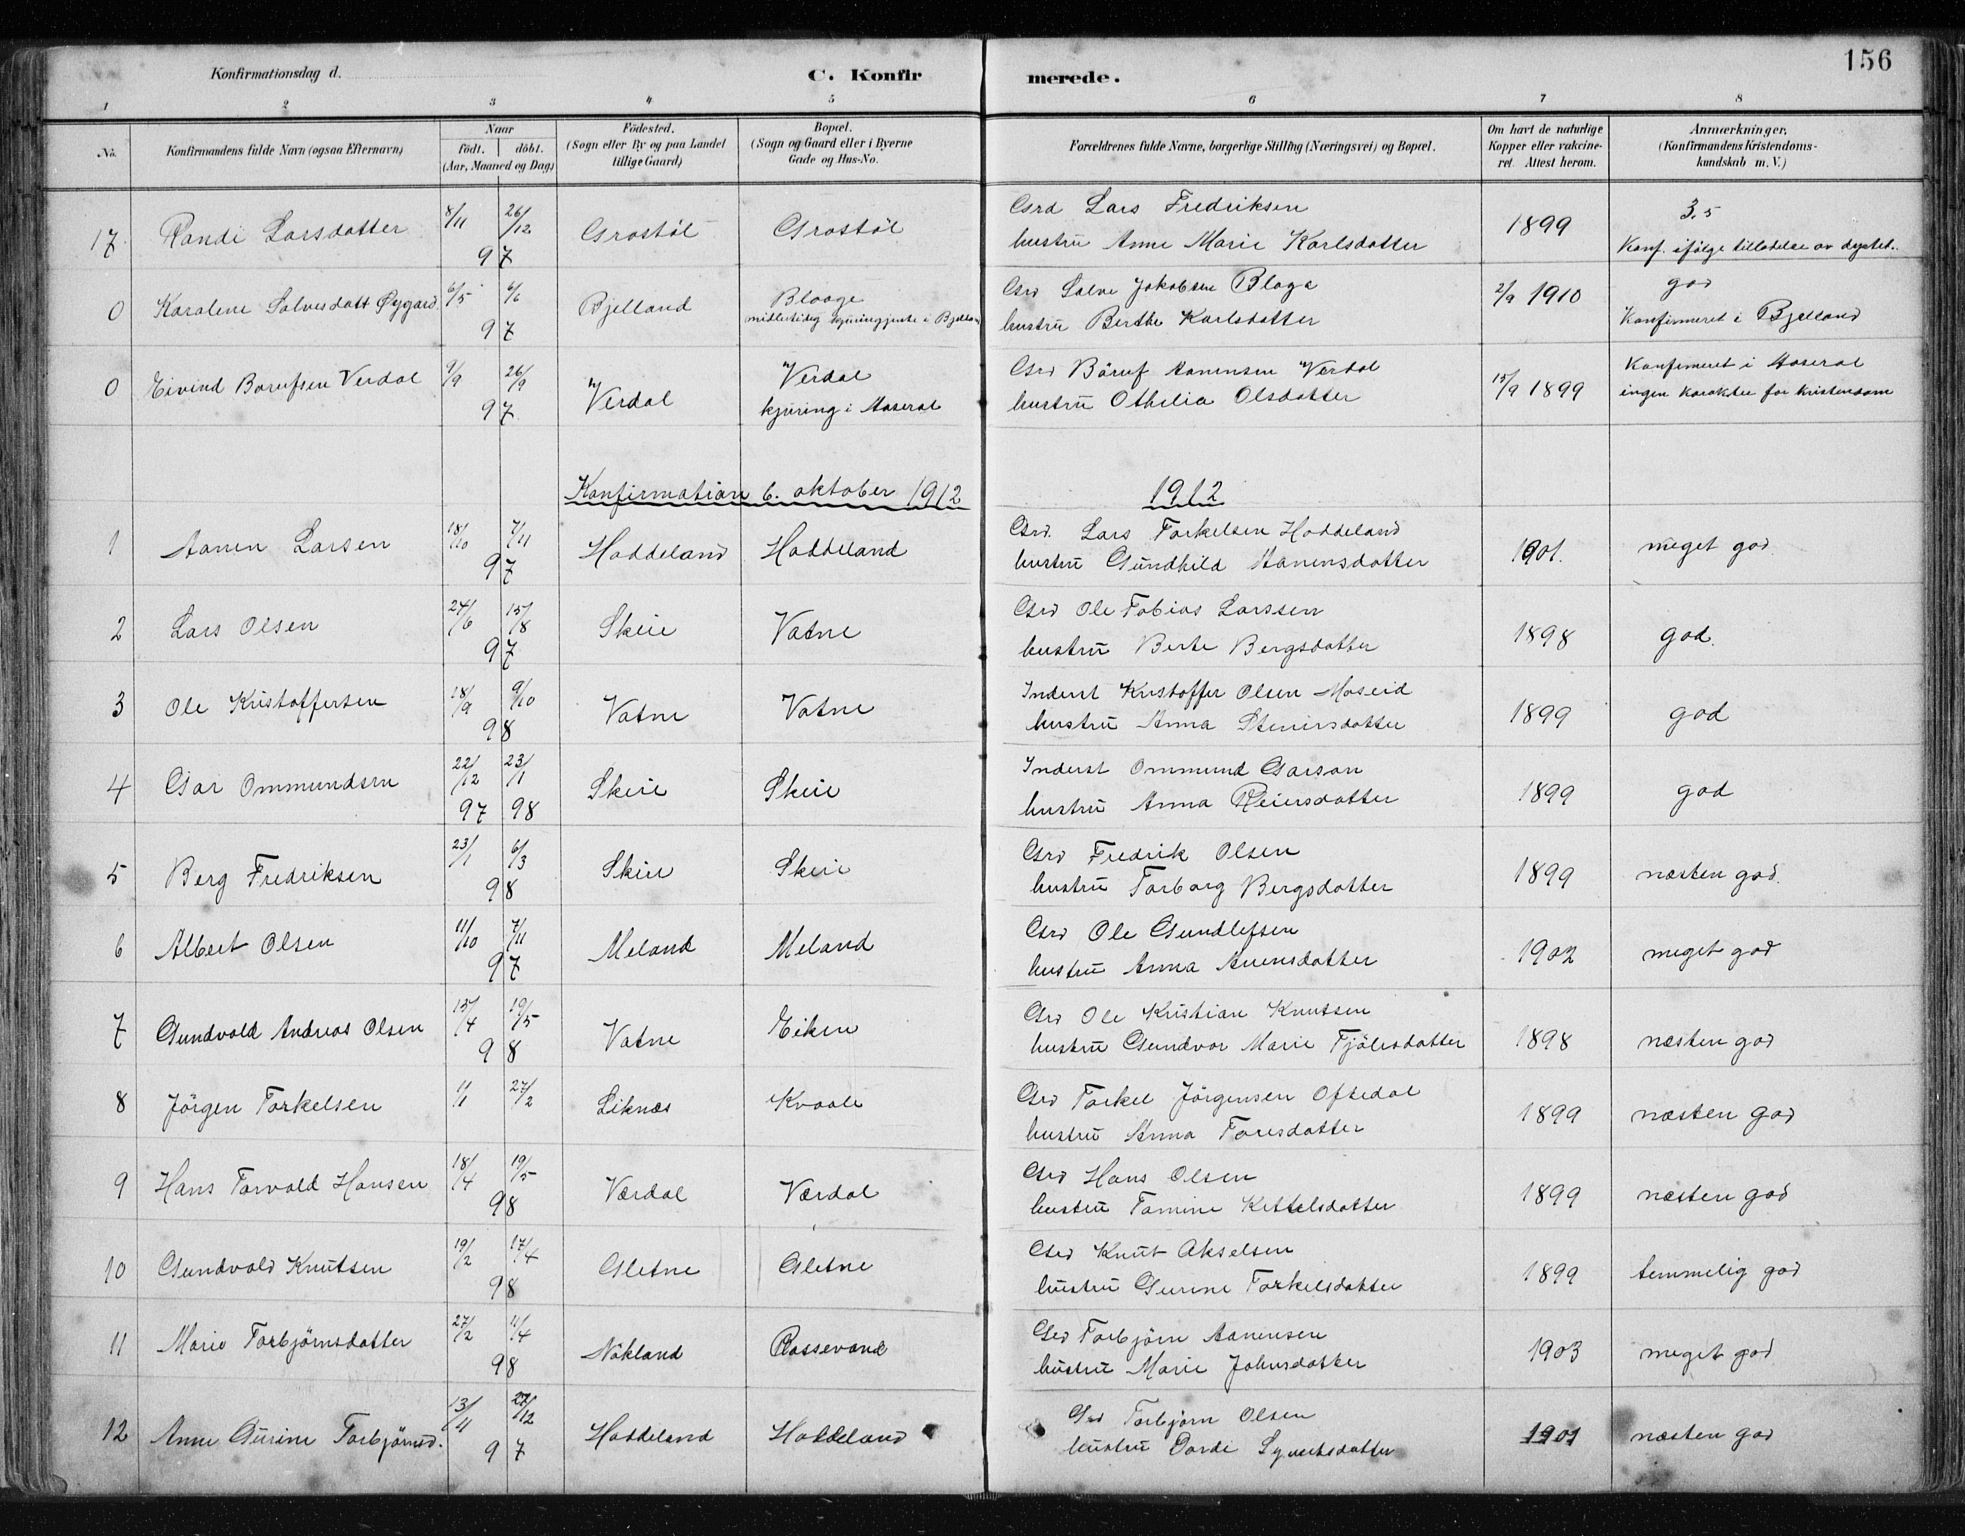 156
Konfirmationsdag d.
C. Konfirmerede.
1 2 3 4 5 6 7 8
No.
Konfirmandens fulde Navn (ogsaa Efternavn)
Naar
födt. döbt.
(Aar, Maaned og Dag)
Födested.
(Sogn eller By og paa Landet
tillige Gaard)
Bopæl.
(Sogn og Gaard eller i Byerne
Gade og Hus-No.
Forældrenes fulde Navne, borgerlige Stilling (Næringsvei) og Bopæl.
Om havt de naturlige
Kopper eller vakcine-
ret. Attest herom.
Anmærkninger.
(Konfirmandens Kristendoms-
kundskab m. V.)
17 Randi Larsdatter 8/11 26/12 97 Grostöl Grostöl
Grd Lars Fredriksen
hustru Anne Marie Karlsdatter
1899
3.5
Konf. ifölge tilladelse av
0 Karolene Salvesdatt Øygard 6/5 6/6 97 Bjelland
Blaage
midlertidig i Bjelland
Grd Salve Jakobsen Blaga
hustru Berthe Karlsdatter
2/9 1910
god
Konfirmeret i Bjelland
0 Eivind Borufsen Verdal 9/9 26/9 97 Verdal
Verdal
kjüring i Aaseral
Grd Böruf Aanensen Verdal
hustru Othilia Olsdatter
15/9 1899
Konfirmeret i Aaseral
ingen karakter for kristendom
Konfirmation 6. oktober 1912 1912
1 Aanen Larsen 18/10 7/11 97 Haddeland Haddeland
Grd. Lars Torkelsen Haddeland
hustru Gundhild Aanensdatter
1901.
meget god.
2 Lars Olsen 24/6 15/8 97 Skeie Vatne
Grd Ole Tobias Larssen
hustru Berte Bergsdatter
1898
god.
3 Ole Kristoffersen 18/9 9/10 98 Vatne Vatne
Inderst Kristoffer Olsen Moseid
hustru Anna Stenersdatter
1899
god
4 Gar Ommundsen 22/12 97 23/1 98 Skeie Skeie
Inderst Ommund Garson
hustru Anna Reiersdatter
1899
god
5 Berg Fredriksen 23/1 6/3 98 Skeie Skeie
Grd Fredrik Olsen
hustru Torborg Bergsdatter
1899
næsten god.
6 Albert Olsen 11/10 7/11 97 Meland Meland
Grd Ole Gundlefsen
hustru Anna Anensdatter
1902
meget god
7 Gundvald Andreas Olsen 15/4 19/5 98 Vatne Eiken
Grd Ole Kristian Knutsen
hustru Gundvor Marie Fjölesdatter
1898
næsten god
8 Jörgen Torkelsen 1/1 27/2 Liknæs Kvaale
Grd Torkel Jörgensen Oftedal
hustru Anna Toresdatter
1899
næsten god
9 Hans Torvald Hansen 18/4 19/5 98 Værdal Værdal
Grd Hans Olsen
hustru Tomine Kettelsdatter
1899
næsten god
10 Gundvald Knutsen 19/2 17/4 98 Gletne Gletne
Grd Knut Akselsen
hustru Gurine Torkelsdatter
1899
temmelig god
11 Marie Torbjörnsdatter 27/2 11/4 98 Nökland Rossevand
Grd Torbjörn Aanensen
hustru Marie Johnsdatter
1903
meget god
12 Anne Gurine Torbjörnsd. 13/11 27/12 97 Haddeland Haddeland
Grd Torbjörn Olsen
hustru Dordi Syvertsdatter
1901
næsten god